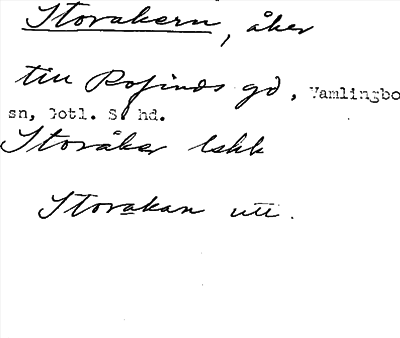 Storakern, åker
till Rofinds gd, Vamlingbo
sn, Gotl. S hd.
Storåker lskk
Storakan utt.